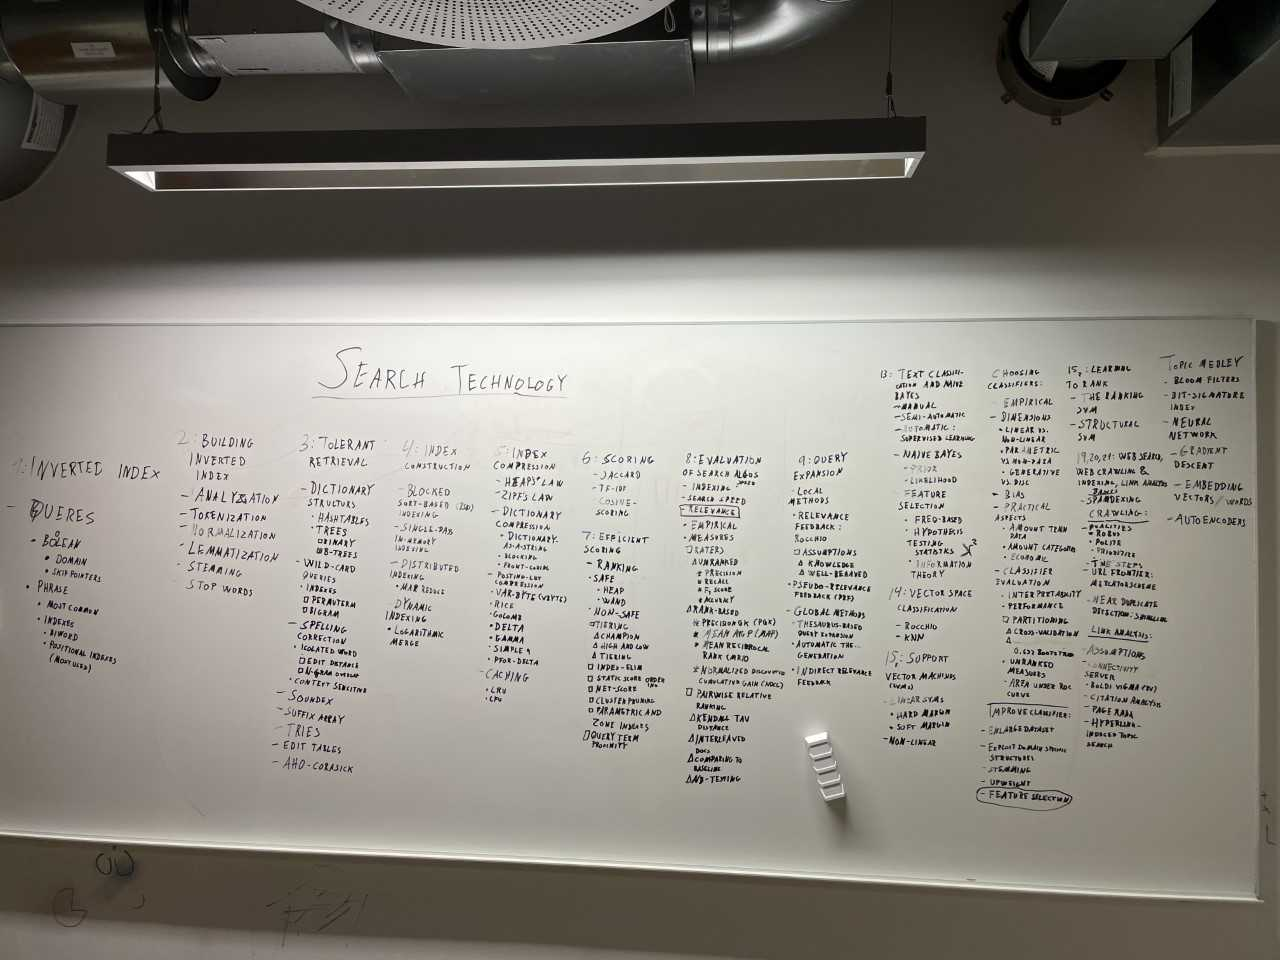 SEARCH TECHNOLOGY
1: INVERTED INDEX
- QUERIES
• BOLEAN
• DOMAIN
• SKIP POINTERS
• PHRASE
• MOST COMMON
• INDEXES
• BIWORD
• POSITIONAL INDEXES
(MOST USED)
2: BUILDING
INVERTED
INDEX
- ANALYZATION
- TOKENIZATION
- NORMALIZATION
- LEMMATIZATION
- STEMMING
STOP WORDS
3: TOLERANT
RETRIEVAL
- DICTIONARY
STRUCTURS
• HASHTABLES
• TREES
□ BINARY
□ B-TREES
- WILD-CARD
QUERIES
• INDEXES
□ PERMUTERM
□ BIGRAM
- SPELLING
CORRECTION
• ISOLATED WORD
□ EDIT DISTANCE
□ N-GRAM OVERLAP
• CONTEXT SENSITIVE
- SOUNDEX
- SUFFIX ARRAY
- TRIES
- EDIT TABLES
- AHO-CORASICK
4: INDEX
CONSTRUCTION
- BLOCKED
SORT-BASED
INDEXING
- SINGLE-PASS
IN-MEMORY
INDEXING
- DISTRIBUTED
INDEXING
• MAP REDUCE
- DYNAMIC
INDEXING
• LOGARITHMIC
MERGE
5: INDEX
COMPRESSION
- HEAPS' LAW
- ZIPF'S LAW
- DICTIONARY
COMPRESSION
• DICTIONARY-
AS-A-STRING
• BLOCKING
• FRONT-CODING
- POSTING-LIST
COMPRESSION
• VAR-BYTE (VBYTE)
• RICE
• GOLOMB
• DELTA
• GAMMA
• SIMPLE 9
• PFOR-DELTA
- CACHING
• LRU
• LFU
6: SCORING
- JACCARD
- TF-IDF
- COSINE-
SCORING
7: EFFICIENT
SCORING
- RANKING
- SAFE
• HEAP
• WAND
- NON-SAFE
□ TIERING
Δ CHAMPION
Δ HIGH AND LOW
Δ TIERING
□ INDEX-ELIM
□ STATIC SCORE ORDER
ING
□ NET-SCORE
□ CLUSTER PRUNING
□ PARAMETRIC AND
ZONE INDEXES
□ QUERY TERM
PROXIMITY
8: EVALUATION
OF SEARCH ALGOS
- INDEXING SPEED
- SEARCH SPEED
- RELEVANCE
• EMPIRICAL
• MEASURES
□ RATERS
Δ UNRANKED
* PRECISION
* RECALL
* F1 SCORE
* ACCURACY
Δ RANK-BASED
* PRECISION@K (P@K)
* MEAN AVG P (MAP)
* MEAN RECIPROCAL
RANK (MRR)
* NORMALIZED DISCOUNTED
CUMULATIVE GAIN (NDCG)
□ PAIRWISE RELATIVE
RANKING
Δ KENDALL TAU
DISTANCE
Δ INTERLEAVED
DOCS
Δ COMPARING TO
BASELINE
Δ A/B-TESTING
9: QUERY
EXPANSION
- LOCAL
METHODS
• RELEVANCE
FEEDBACK:
ROCCHIO
□ ASSUMPTIONS
Δ KNOWLEDGE
Δ WELL-BEHAVED
• PSEUDO-RELEVANCE
FEEDBACK (PRF)
- GLOBAL METHODS
• THESAURUS-BASED
QUERY EXPANSION
• AUTOMATIC THE...
GENERATION
• INDIRECT RELEVANCE
FEEDBACK
13: TEXT CLASSIFI-
CATION AND NAIVE
BAYES
- MANUAL
- SEMI-AUTOMATIC
- AUTOMATIC:
SUPERVISED LEARNING
- NAIVE BAYES
• PRIOR
• LIKELIHOOD
- FEATURE
SELECTION
• FREQ-BASED
• HYPOTHESIS
TESTING
STATISTIKS X²
• INFORMATION
THEORY
14: VECTOR SPACE
CLASSIFICATION
- ROCCHIO
- KNN
15,: SUPPORT
VECTOR MACHINES
(SVMs)
- LINEAR SVMS
• HARD MARGIN
• SOFT MARGIN
- NON-LINEAR
CHOOSING
CLASSIFIERS:
- EMPIRICAL
- DIMENSIONS
• LINEAR VS.
NON-LINEAR
• PARAMETRIC
VS NON-PARA
• GENERATIVE
VS DISC
• BIAS
- PRACTICAL
ASPECTS
• AMOUNT TRAIN
DATA
• AMOUNT CATEGORIES
• ECONOMIC
- CLASSIFIER
EVALUATION
• INTERPRETABILITY
• PERFORMANCE
□ PARTITIONING
Δ CROSS-VALIDATION
Δ 0.632 BOOTSTRAP
• UNRANKED
MEASURES
• AREA UNDER ROC
CURVE
IMPROVE CLASSIFIER:
- ENLARGE DATASET
- EXPLOIT DOMAIN SPECIFIC
STRUCTURES
- STEMMING
- UPWEIGHT
- FEATURE SELECTION
15,: LEARNING
TO RANK
- THE RANKING
SVM
- STRUCTURAL
SVM
19,20,21: WEB SEARCH,
WEB CRAWLING &
INDEXING, LINK ANALYSIS
- SPAMDEXING
CRAWLING:
- QUALITIES
• ROBUS
• POLITE
• PRIORITIZE
- THE STEPS
- URL FRONTIER:
MERCATOR SCHEME
- NEAR DUPLICATE
DETECTION: SHINGLING
LINK ANALYSIS:
- ASSUMPTIONS
- CONNECTIVITY
SERVER
- BOLDI VIGNA (BV)
- CITATION ANALYSIS
- PAGE RANK
- HYPERLINK-
INDUCED TOPIC
SEARCH
TOPIC MEDLEY
- BLOOM FILTERS
- BIT-SIGNATURE
INDEX
- NEURAL
NETWORK
- GRADIENT
DESCENT
- EMBEDDING
VECTORS/WORDS
- AUTOENCODERS